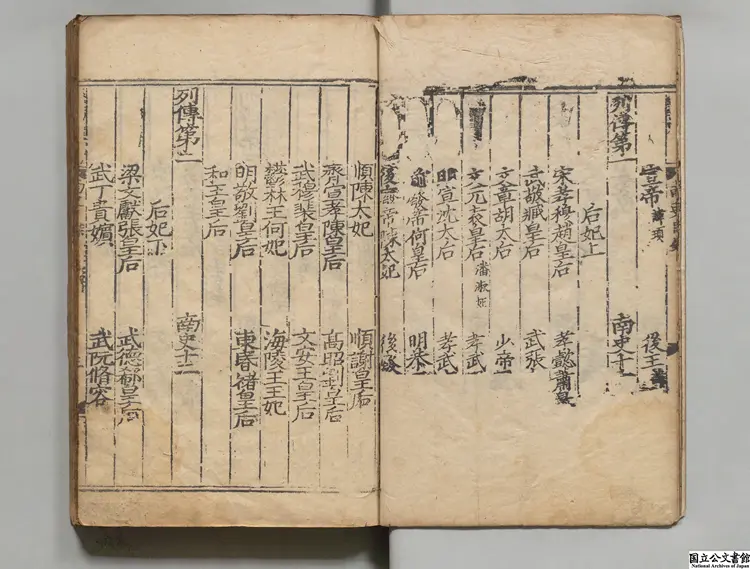 宣帝 諱頊 後主
列傳第一 南史十一
后妃上
宋孝穆趙皇后 孝懿蕭皇
武敬臧皇后 武張
文章胡太后 少帝
文元袁皇后 潘淑妃 孝武
明宣沈太后 孝武
前廢帝何皇后 明恭
後廢帝陳太妃 後廢
順陳太妃 順謝皇后
齊宣孝陳皇后 高昭劉皇后
武穆裴皇后 文安王皇后
鬱林王何妃 海陵王王妃
明敬劉皇后 東昏褚皇后
和王皇后
列傳第二 南史十二
后妃下
梁文獻張皇后 武德郗皇后
武丁貴嬪 武阮脩容
国立公文書館
National Archives of Japan